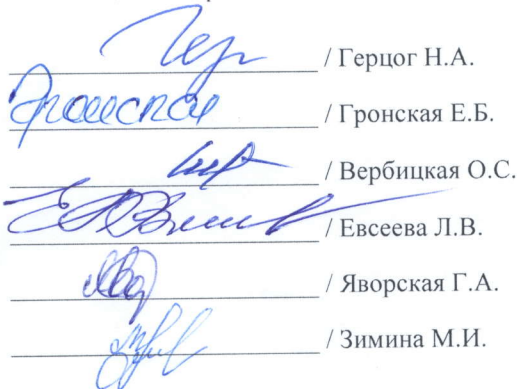 / Герцог Н.А.
Гронская / Гронская Е.Б.
/ Вербицкая О.С.
/ Евсеева Л.В.
/ Яворская Г.А.
/ Зимина М.И.